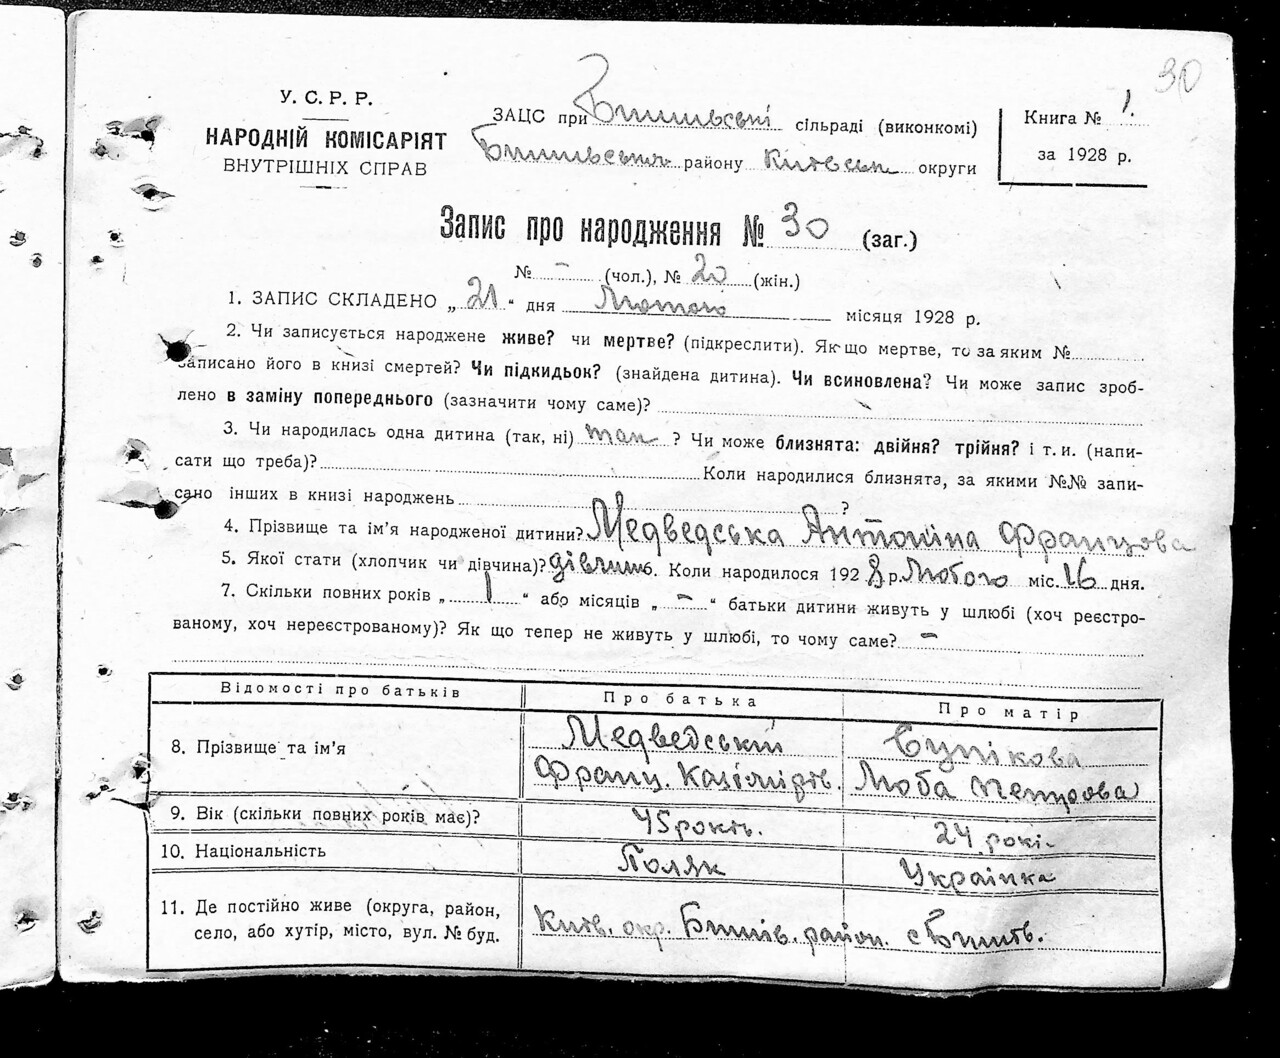 30
У. С. Р. Р.
НАРОДНІЙ КОМІСАРІЯТ
ВНУТРІШНІХ СПРАВ
ЗАЦС при сільраді (виконкомі)
району Київськ округи
Книга № 1.
за 1928 р.
Запис про народження № 30 (заг.)
№ - (чол.), № 20 (жін.)
1. ЗАПИС СКЛАДЕНО „ 21 “ дня Лютого місяця 1928 р.
2. Чи записується народжене живе? чи мертве? (підкреслити). Як що мертве, то за яким №
записано його в книзі смертей? Чи підкидьок? (знайдена дитина). Чи всиновлена? Чи може запис зроб-
лено в заміну попереднього (зазначити чому саме)?
3. Чи народилась одна дитина (так, ні) так ? Чи може близнята: двійня? трійня? і т. и. (напи-
сати що треба)? Коли народилися близнята, за якими №№ запи-
сано інших в книзі народжень ?
4. Прізвище та ім’я народженої дитини? Медведська Антоніна Францова
5. Якої стати (хлопчик чи дівчина)? дівчин 6. Коли народилося 1928 р. Лютого міс. 16 дня.
7. Скільки повних років „ 1 “ або місяців „ - “ батьки дитини живуть у шлюбі (хоч реєстро-
ваному, хоч нереєстрованому)? Як що тепер не живуть у шлюбі, то чому саме? -
Відомості про батьків Про батька Про матір
8. Прізвище та ім’я Медведський
Франц. Казімірів. Люба Петрова
9. Вік (скільки повних років має)? 45 років. 24 рокі.
10. Національність Поляк Українка
11. Де постійно живе (округа, район,
село, або хутір, місто, вул. № буд. Київ. окр. район. с